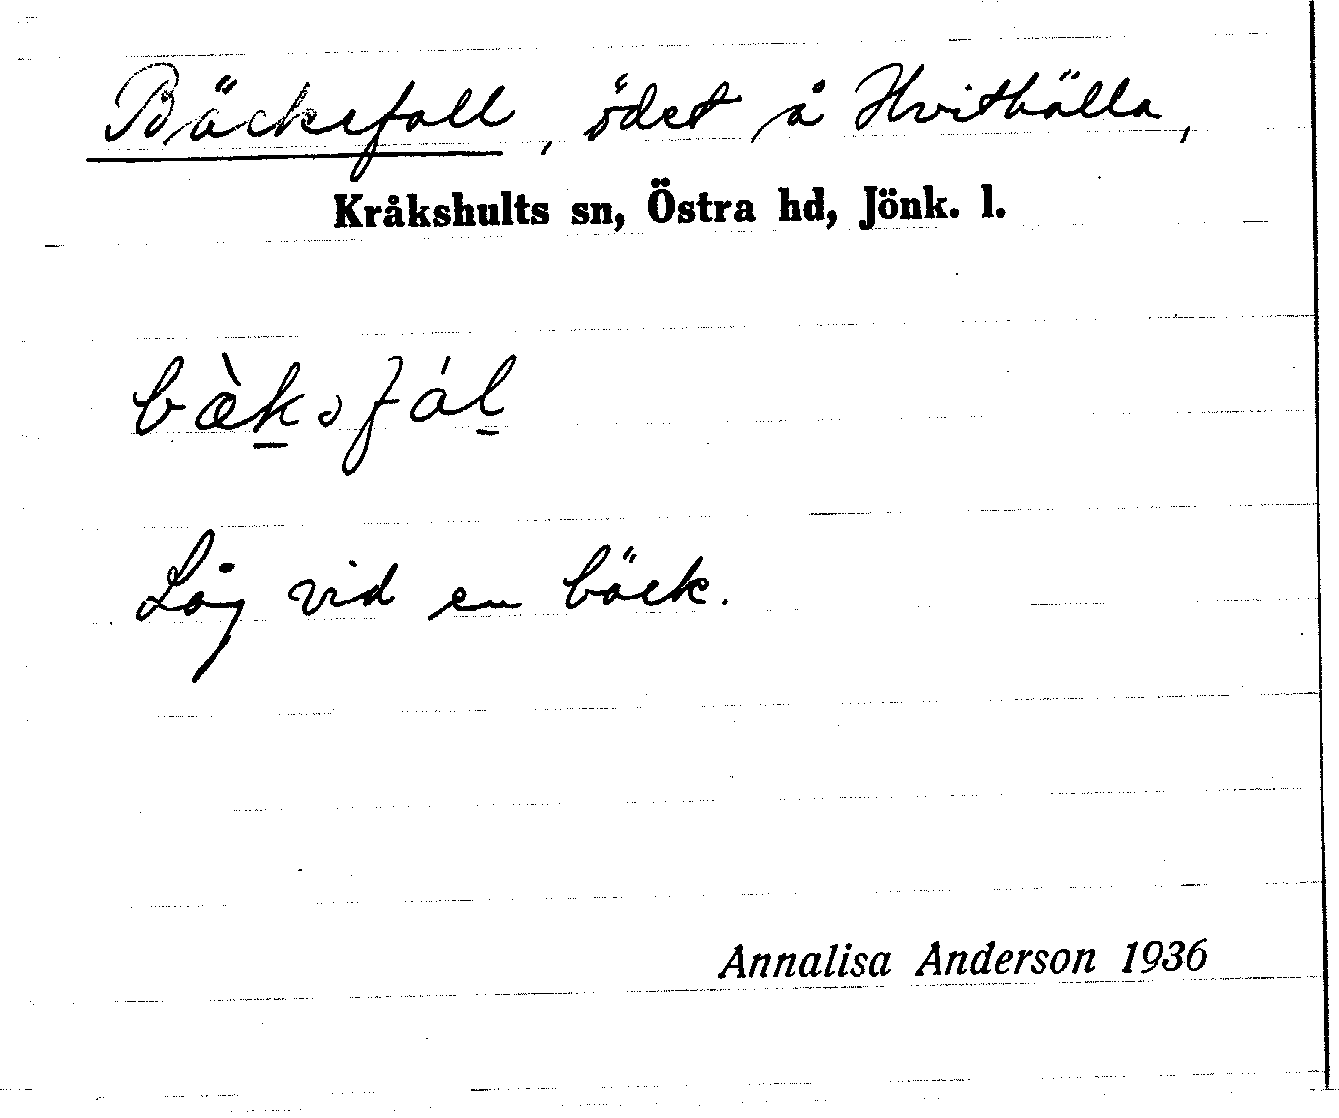 Bäckefall, ödet å Hvithälla,
Kråkshults sn, Östra hd, Jönk. l.
bæ̀k̠əfál̠
Låg vid en bäck.
Annalisa Anderson 1936